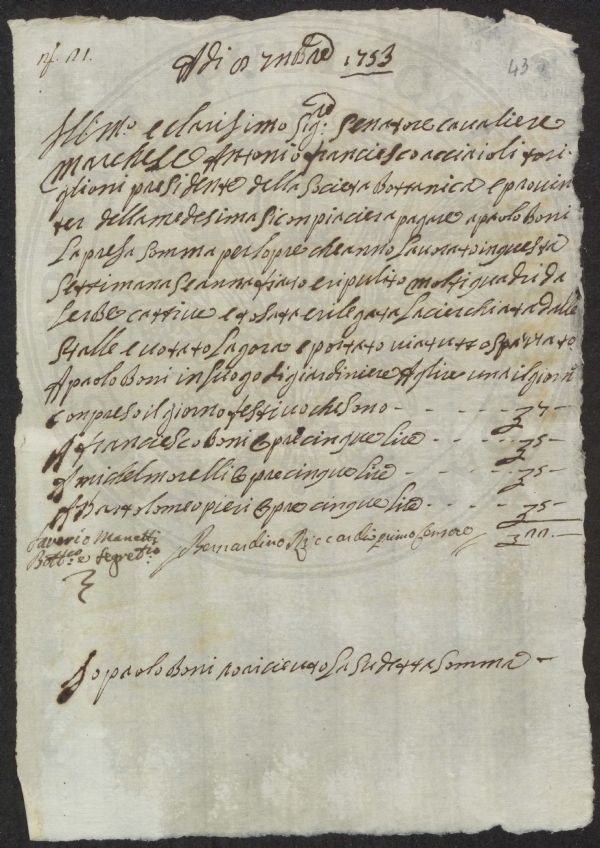 nº. 21.
43
Adi 8 7mbre 1753
Illmo. e clarisimo Sigre: Senatore cavaliere
Marchese Antonio franciesco acciaioli tori
glioni presidente della Societa Bottanica e provin
ter della medesima si conpiaciera pagare a paolo Boni
La presa Somma per lopre che anno Lavorato in questa
Settimana Se annafiato e ripulito molti quadri da
Lerbe cattive e tosata e rilegata La cierchiata dalle
Stalle e votato La gora e portato via tutto Spazato
A paolo Boni in luogo di giardiniere A Lire una il giorno
conpreso il giorno festivo che sono - - - - - £ 7 -
A franciesco Boni 6 pre cinque Lire - - - - £ 5 -
A michel morelli 6 pre cinque Lire - - - - £ 5 -
A Bartolomeo pieri 6 pre cinque Lire - - - £ 5 -
Saverio Manetti
Bernardino Riccardi primo Censore £ 22. -
Bottco. e Segretrio.
Io paolo Boni o ricievuto La Sudetta Somma -